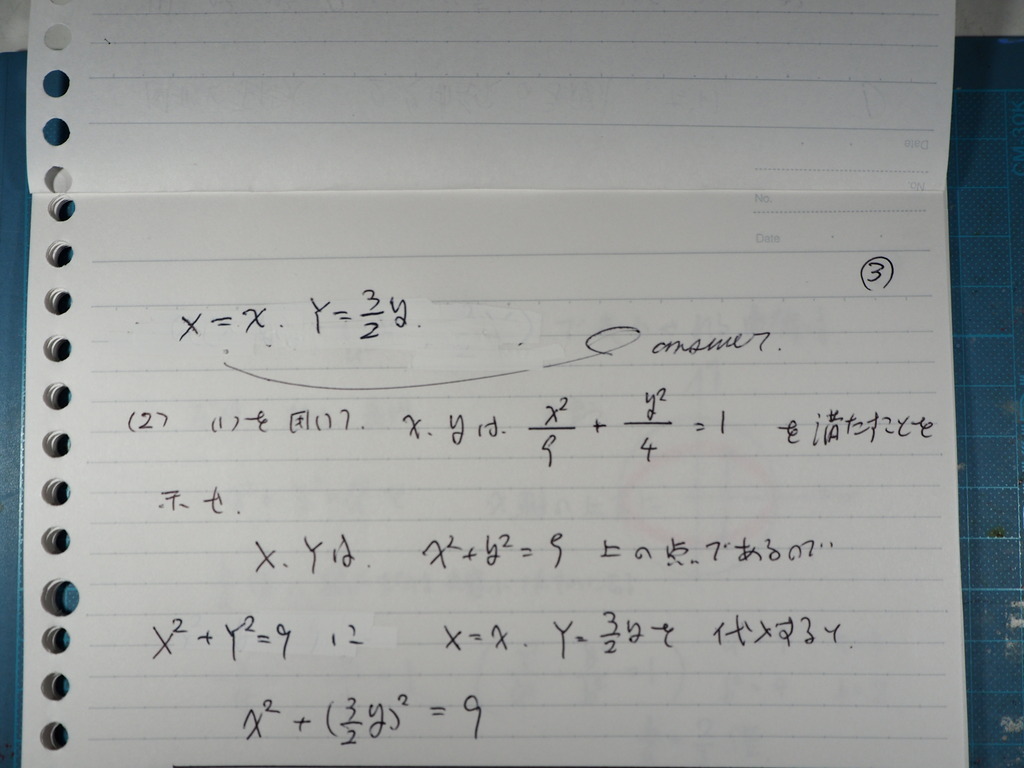 No.
Date
③
X = x. Y = 3/2 y.
answer.
(2) (1)を用いて. x. yは. x²/9 + y²/4 = 1 を満たすことを
示せ.
X. Yは. x²+y²=9 上の点であるので
X²+Y²=9 に X=x. Y=3/2 yを 代入すると
x² + (3/2 y)² = 9